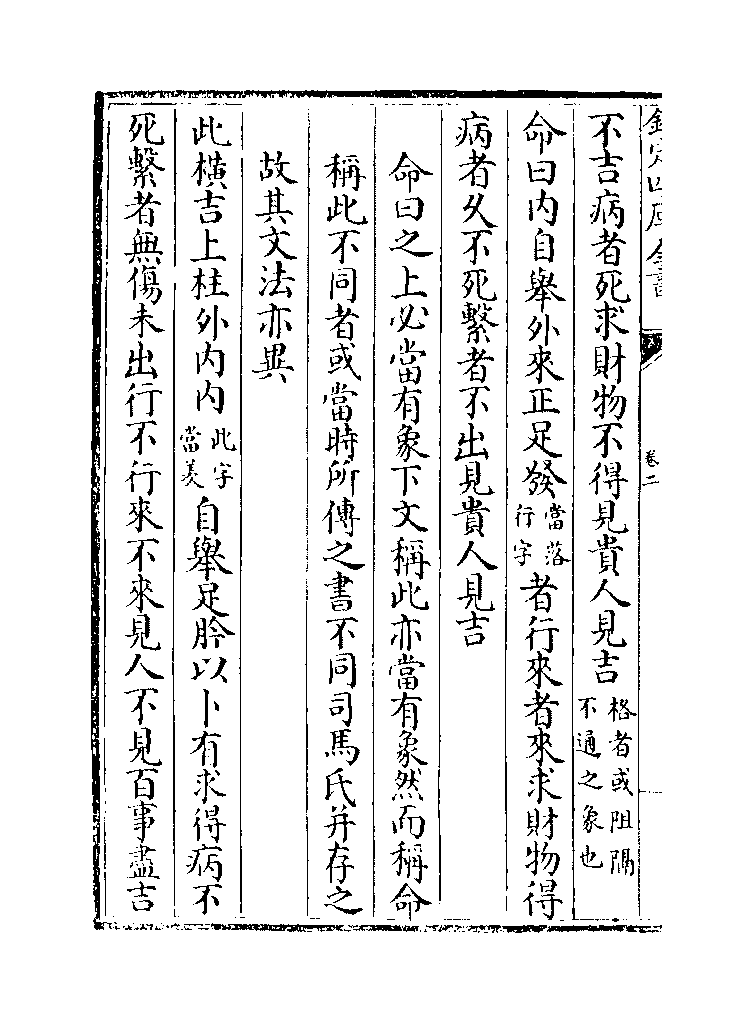 欽定四庫全書
卷二
不吉病者死求財物不得見貴人見吉格者或阻隔不通之象也
命曰内自舉外來正足發當落行字者行來者來求財物得
病者久不死繫者不出見貴人見吉
命曰之上必當有象下文稱此亦當有象然而稱命
稱此不同者或當時所傳之書不同司馬氏并存之
故其文法亦異
此橫吉上柱外内内此字當羡自舉足肣以卜有求得病不
死繫者無傷未出行不行來不來見人不見百事盡吉